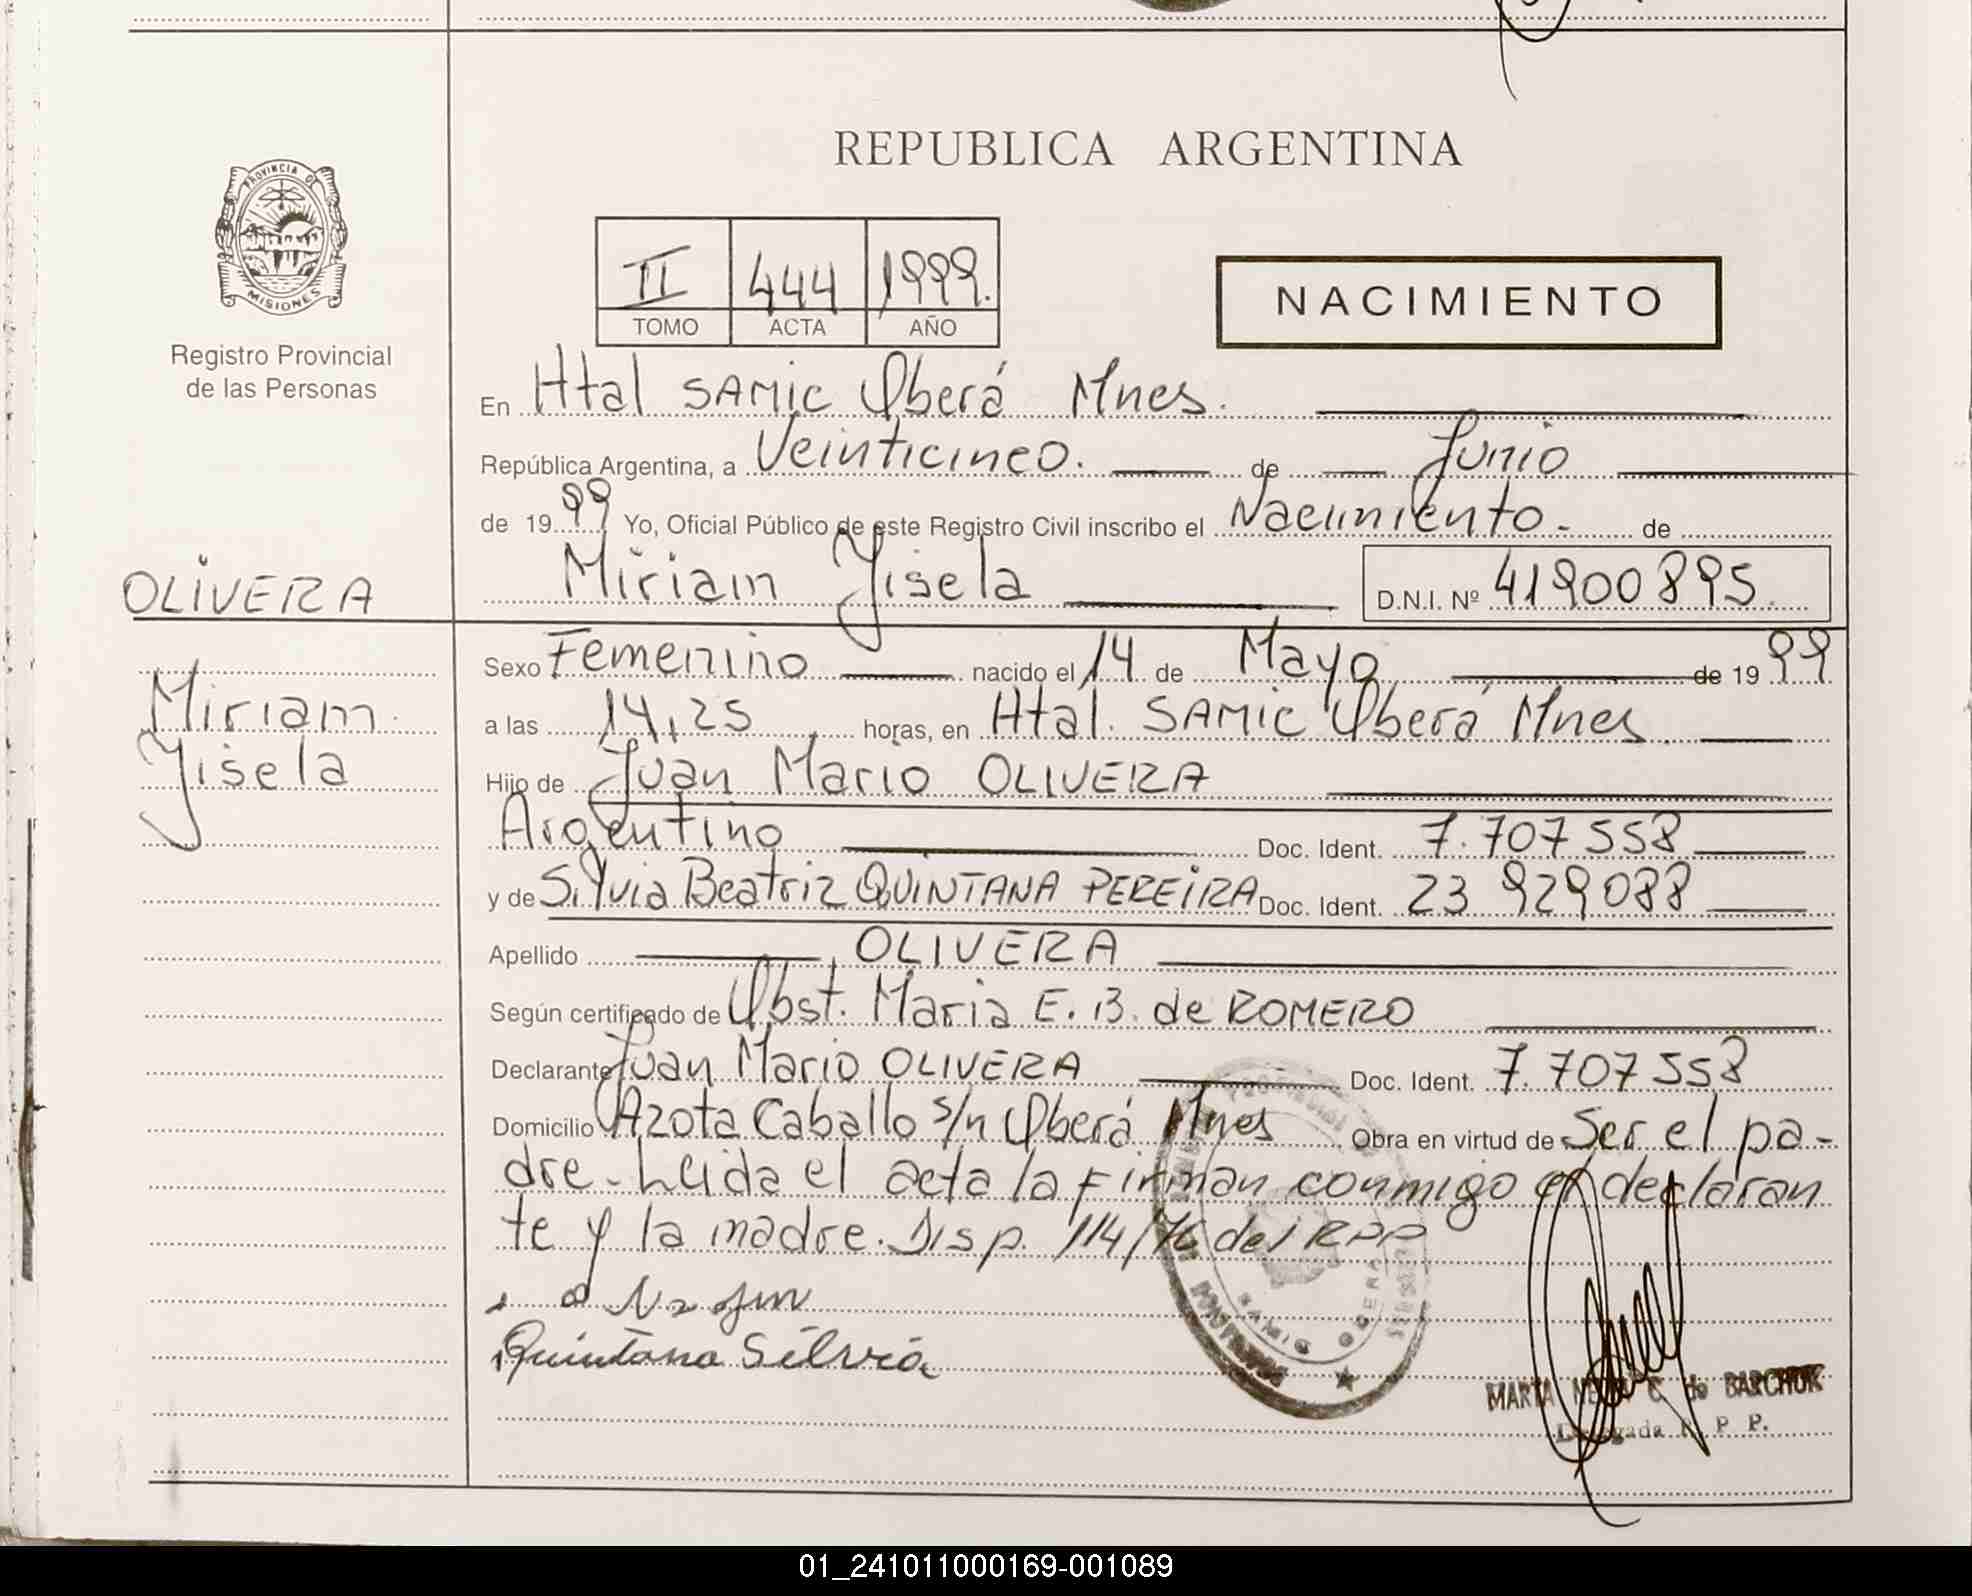 REPUBLICA ARGENTINA
PROVINCIA DE
MISIONES
Registro Provincial
de las Personas
II 444 1999.
TOMO ACTA AÑO
NACIMIENTO
En Htal SAMIC Oberá Mnes.
República Argentina, a Veinticinco. de Junio
de 1999 Yo, Oficial Público de este Registro Civil inscribo el Nacimiento. de
OLIVERA
Miriam Yisela D.N.I. Nº 41900895
Miriam
Yisela
Sexo Femenino nacido el 14 de Mayo de 1999
a las 14,25 horas, en Htal. SAMIC Oberá Mnes.
Hijo de Juan Mario OLIVERA
Argentino Doc. Ident. 7.707558
y de Silvia Beatriz QUINTANA PEREIRA Doc. Ident. 23 929088
Apellido OLIVERA
Según certificado de Obst. Maria E. B. de ROMERO
Declarante Juan Mario OLIVERA Doc. Ident. 7.707558
Domicilio Azota Caballo s/n Oberá Mnes Obra en virtud de Ser el pa-
dre. Leida el acta la firman conmigo el declaran
te y la madre. Disp. 114/76 del RPP
Quintana Silvia
SAMIC OBERA
MARTA C. de BARCHUK
Delegada R. P. P.
01_241011000169-001089